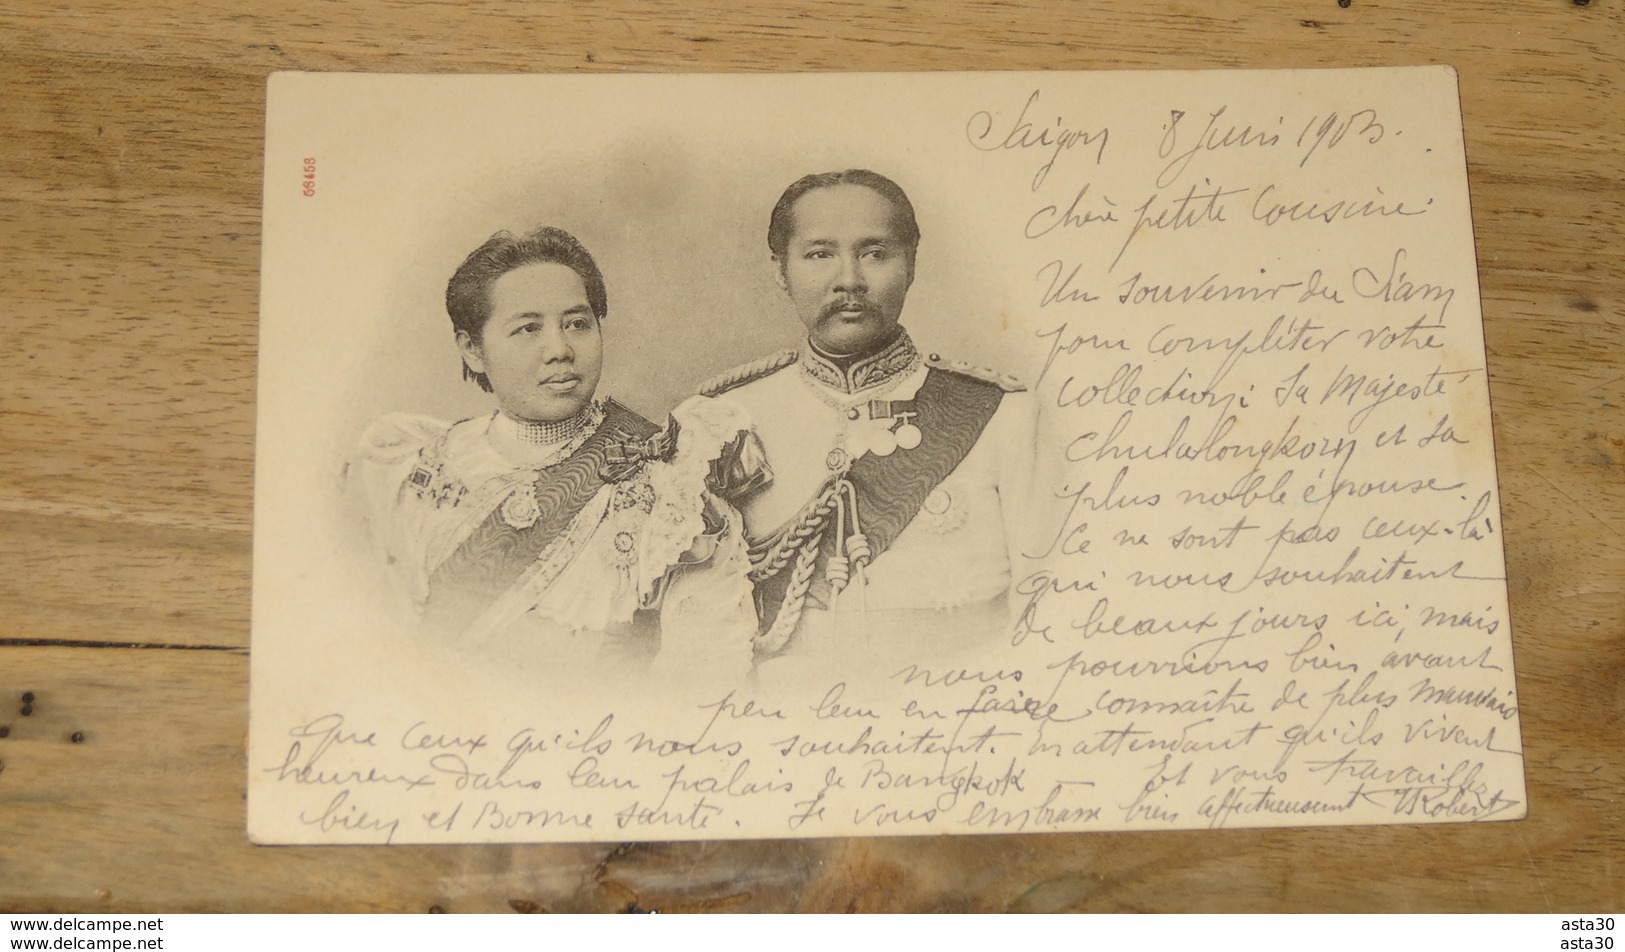 58458
Saigon 8 Juin 1903.
chère petite Cousine.
Un souvenir du Siam
pour compléter votre
collection: Sa Majesté
Chulalongkorn et Sa
plus noble épouse.
Ce ne sont pas ceux-là
qui nous souhaitent
de beaux jours ici, mais
nous pourrions bien avant
peu leur en faire connaître de plus mauvais
que ceux qu'ils nous souhaitent. En attendant qu'ils vivent
heureux dans leur palais de Bangkok _ Et vous travaillez
bien et Bonne santé. Je vous embrasse bien affectueusement Robert
www.delcampe.net asta30
www.delcampe.net asta30